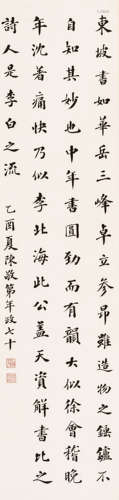 東坡書如華岳三峰卓立參昂雖造物之鑪錘不
自知其妙也中年書圓勁而有韻大似徐會稽晚
年沈着痛快乃似李北海此公蓋天資解書比之
詩人是李白之流
乙酉夏陳敬第年政七十